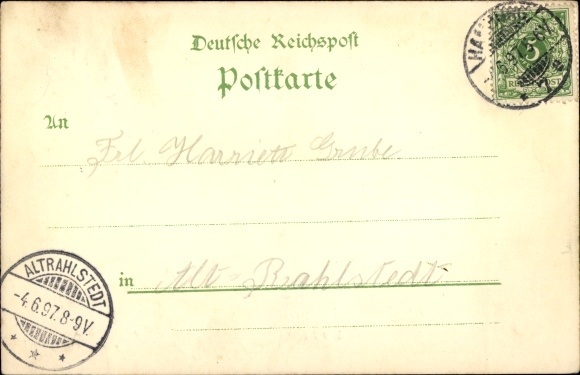 Deutsche Reichspost
Postkarte
An
Frl. Harriett Grube
in Alt Rahlstedt
HAMBURG
5
REICHSPOST
ALTRAHLSTEDT
-4.6.97.8-9V.